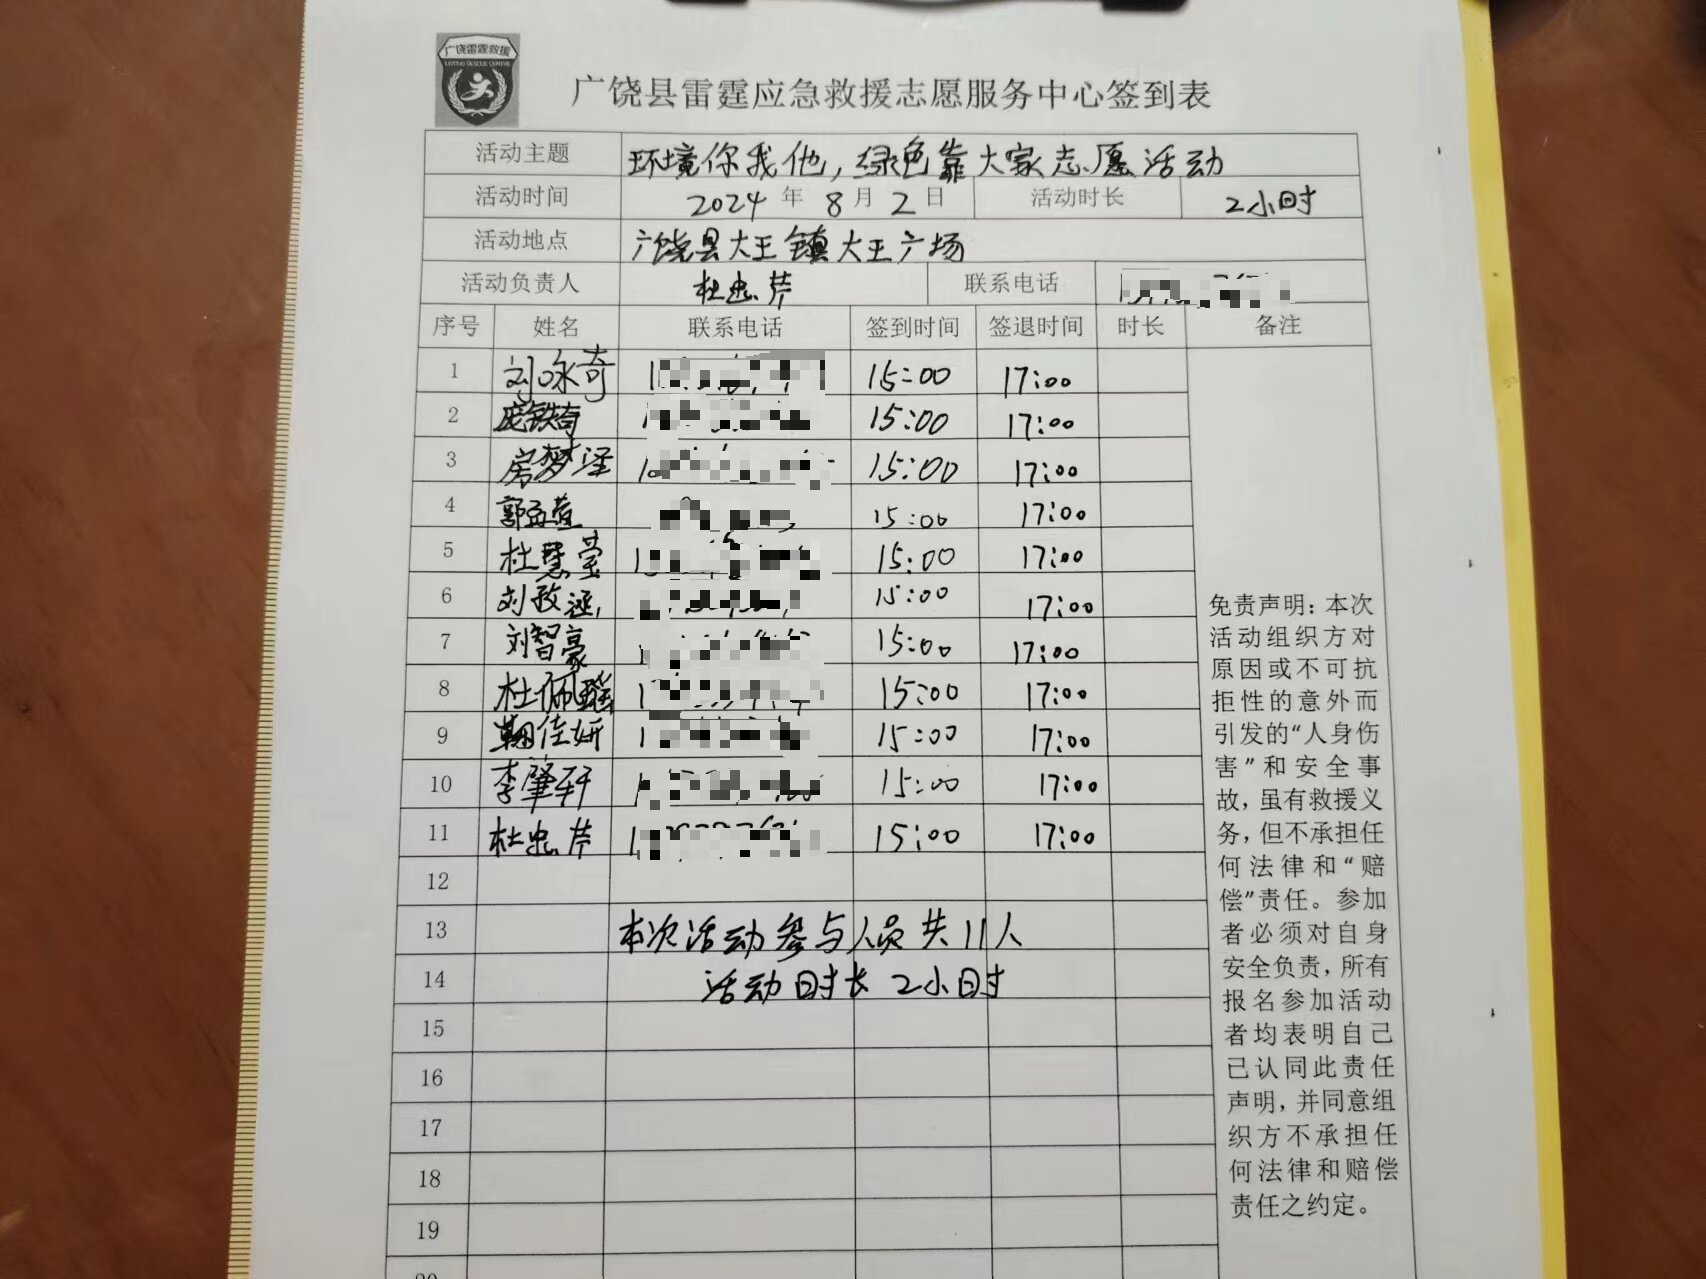 广饶雷霆救援
广饶县雷霆应急救援志愿服务中心签到表
活动主题 环境你我他，绿色靠大家志愿活动
活动时间 2024年8月2日 活动时长 2小时
活动地点 广饶县大王镇大王广场
活动负责人 杜忠芹 联系电话
序号 姓名 联系电话 签到时间 签退时间 时长 备注
1 刘咏奇 15:00 17:00
2 庞铁奇 15:00 17:00
3 房梦泽 15:00 17:00
4 郭孟萱 15:00 17:00
5 杜慧莹 15:00 17:00
6 刘孜涵 15:00 17:00
7 刘智豪 15:00 17:00
8 杜佩瑶 15:00 17:00
9 鞠佳妍 15:00 17:00
10 李肇轩 15:00 17:00
11 杜忠芹 15:00 17:00
12
13 本次活动参与人员共11人
14 活动时长2小时
15
16
17
18
19
20
免责声明：本次
活动组织方对
原因或不可抗
拒性的意外而
引发的“人身伤
害”和安全事
故，虽有救援义
务，但不承担任
何法律和“赔
偿”责任。参加
者必须对自身
安全负责，所有
报名参加活动
者均表明自己
已认同此责任
声明，并同意组
织方不承担任
何法律和赔偿
责任之约定。